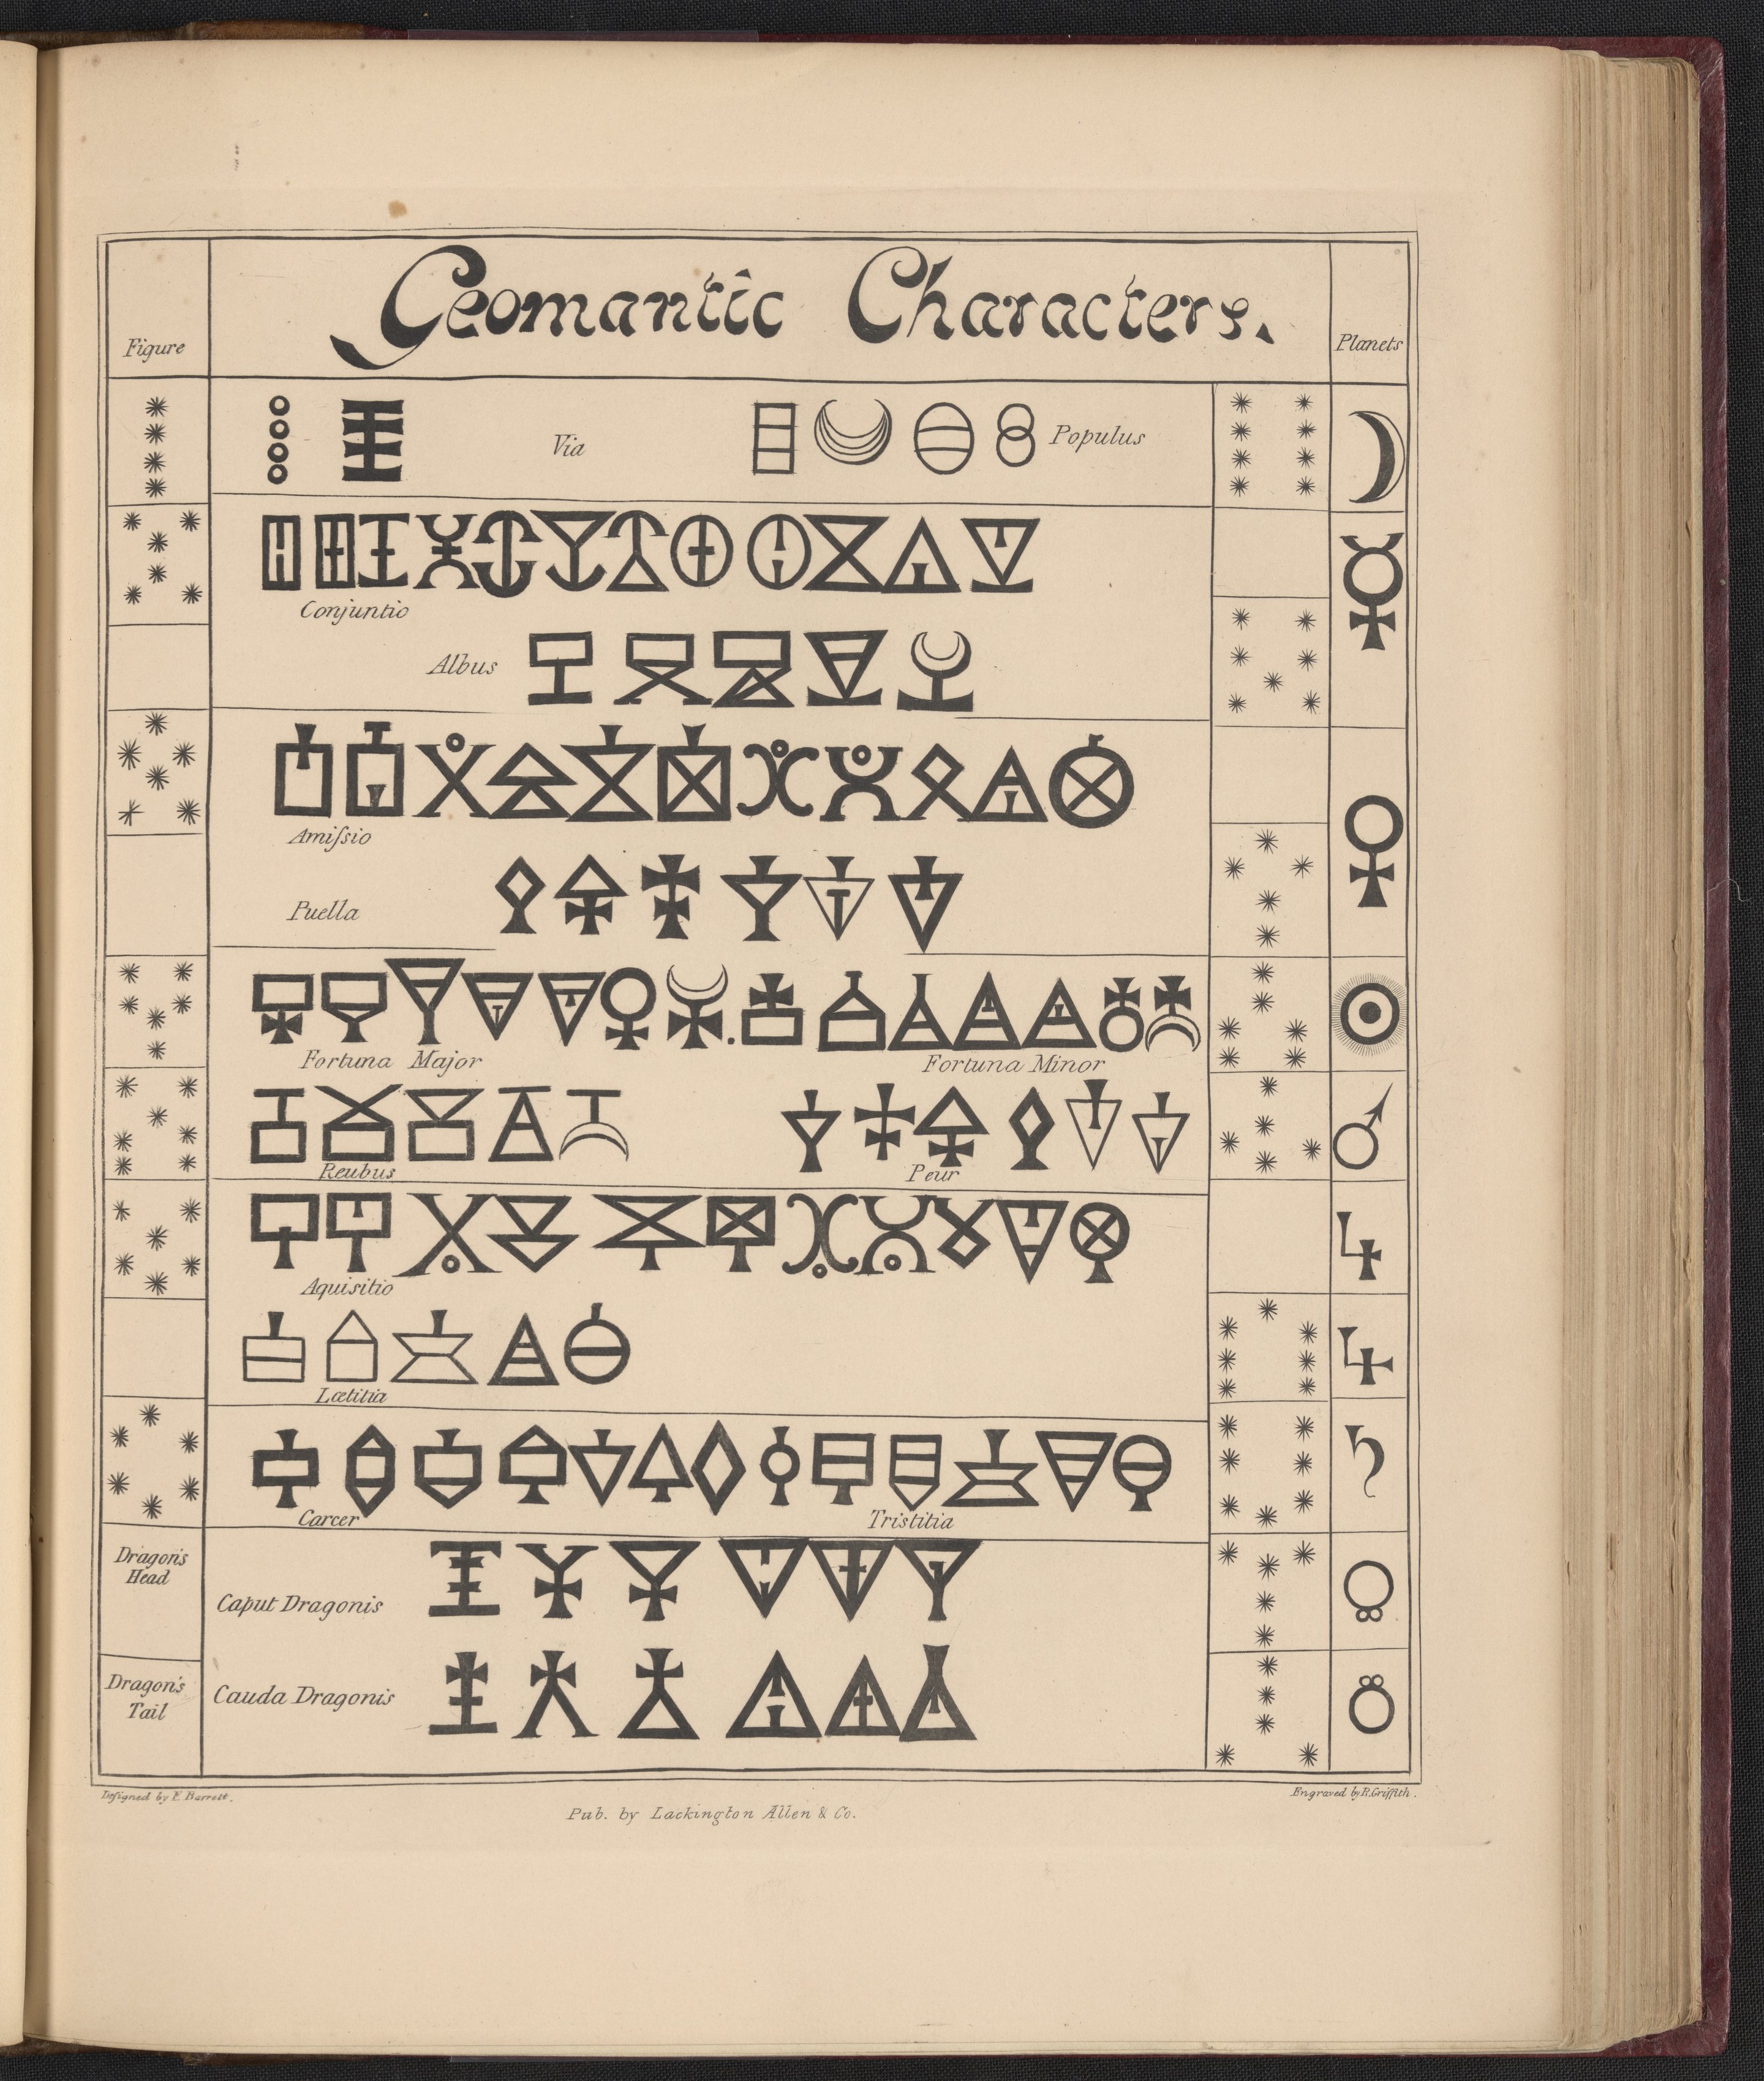 Geomantic Characters.
Figure
Planets
Via
Populus
Conjuntio
Albus
Amiſsio
Puella
Fortuna Major
Fortuna Minor
Reubus
Peur
Aquisitio
Lætitia
Carcer
Tristitia
Dragon's
Head
Caput Dragonis
Dragon's
Tail
Cauda Dragonis
Deſigned by F. Barrett.
Engraved by R. Griffith.
Pub. by Lackington Allen & Co.